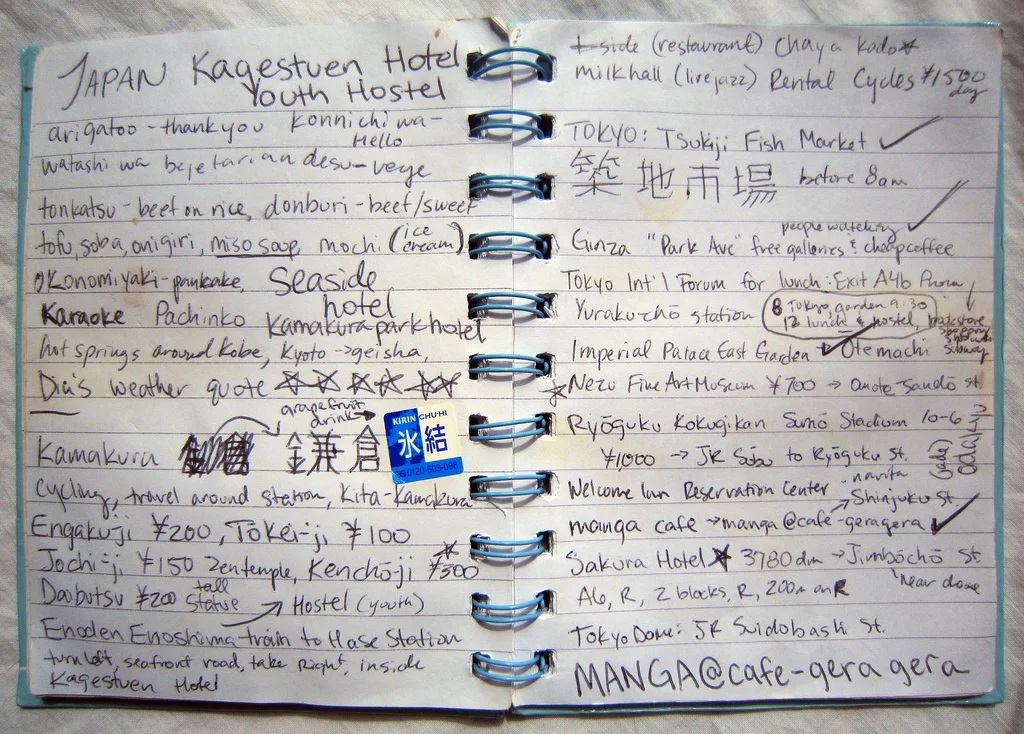 JAPAN Kagestuen Hotel
Youth Hostel
arigatoo - thank you Konnichi wa -
Hello
watashi wa bejetarian desu - vege
tonkatsu - beef on rice, donburi - beef/sweet
tofu, soba, onigiri, miso soup, mochi (ice cream)
Okonomiyaki - pankake, Seaside hotel
Karaoke Pachinko Kamakura park hotel
hot springs around Kobe, Kyoto → geisha,
Dia's weather quote
grapefruit drink →
Kamakura 鎌倉
KIRIN CHU-HI
氷結
0120-503-098
Cycling, travel around station, Kita-Kamakura
Engakuji ¥200, Tōkei-ji ¥100
Jochi-ji ¥150 zen temple, Kenchō-ji ¥300
Daobutsu ¥200 tall statue → Hostel (youth)
Enoden Enoshima train to Hase Station
turn left, seafront road, take Right, inside
Kagestuen Hotel
t-side (restaurant) Chaya kado
milkhall (live jazz) Rental Cycles ¥1500 day
TOKYO: Tsukiji Fish Market ✓
築地市場 before 8am
people watching
Ginza "Park Ave" free galleries & cheap coffee
Tokyo Int'l Forum for lunch: Exit A4b from
Yuraku-chō station
8 Tokyo garden 9:30
12 lunch & hostel,
subway
Imperial Palace East Garden Otemachi
Nezu Fine Art Museum ¥700 → Omote-Sandō st.
Ryōguku Kokugikan Sumō Stadium 10-6
¥1000 → JR Sobu to Ryōguku St.
Welcome Inn Reservation Center - narita
Shinjuku St.
manga cafe → manga@cafe-geragera ✓
Sakura Hotel 3780 dm → Jimbōchō St.
A6, R, 2 blocks, R, 200m on R
'Near dome
Tokyo Dome: JR Suidobashi St.
MANGA@cafe-gera gera